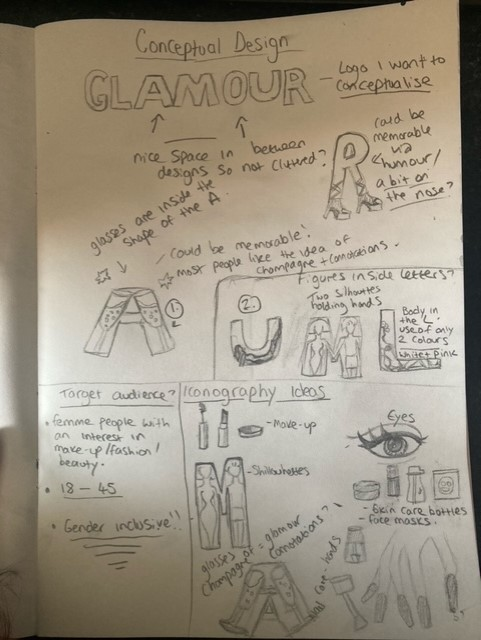 Conceptual Design
GLAMOUR
- Logo I want to
conceptualise
nice space in between
designs so not cluttered?
R
could be
memorable
via
humour/
a bit on
the nose?
glasses are inside the
shape of the A.
could be memorable!
most people like the idea of
champagne + connotations.
A
1.
2.
Figures inside letters?
Two silhouttes
holding hands
U M L
Body in
the 'L'
use of only
2 colours
white + pink
Target audience?
• femme people with
an interest in
make-up/fashion/
beauty.
• 18 - 45
• Gender inclusive!!
Iconography Ideas
- Make-up
Eyes
M
- Shillouhettes
- Skin care bottles
- Face masks.
glasses
champagne = glamour
connotations?
A
Nail care - hands